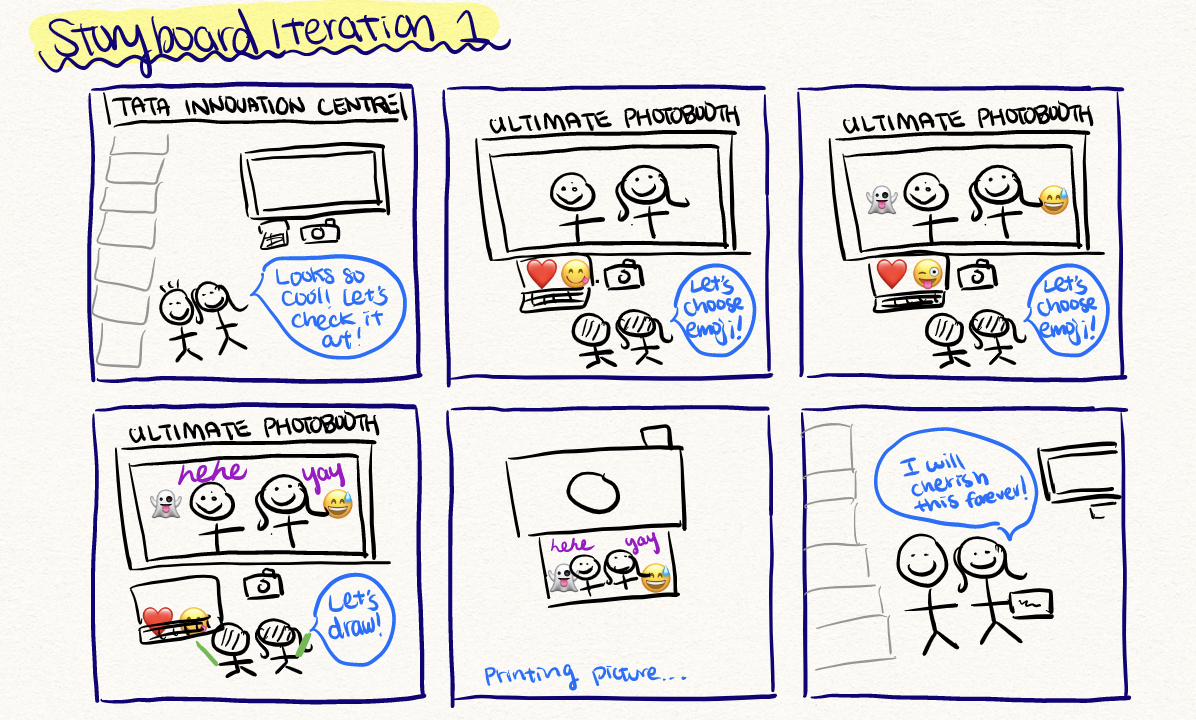 Storyboard Iteration 1
TATA INNOVATION CENTRE
Looks so
cool! Let's
check it
out!
ULTIMATE PHOTOBOOTH
Let's
choose
emoji!
ULTIMATE PHOTOBOOTH
Let's
choose
emoji!
ULTIMATE PHOTOBOOTH
hehe yay
Let's
draw!
hehe yay
Printing picture...
I will
cherish
this forever!